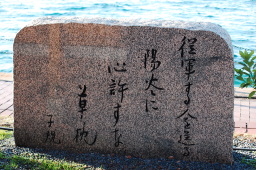 従軍する人を送る
陽炎に
心許すな
草枕
子規